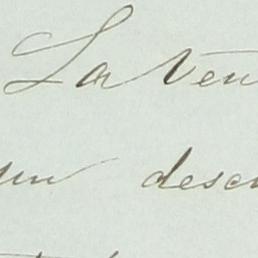 La ven
un desc